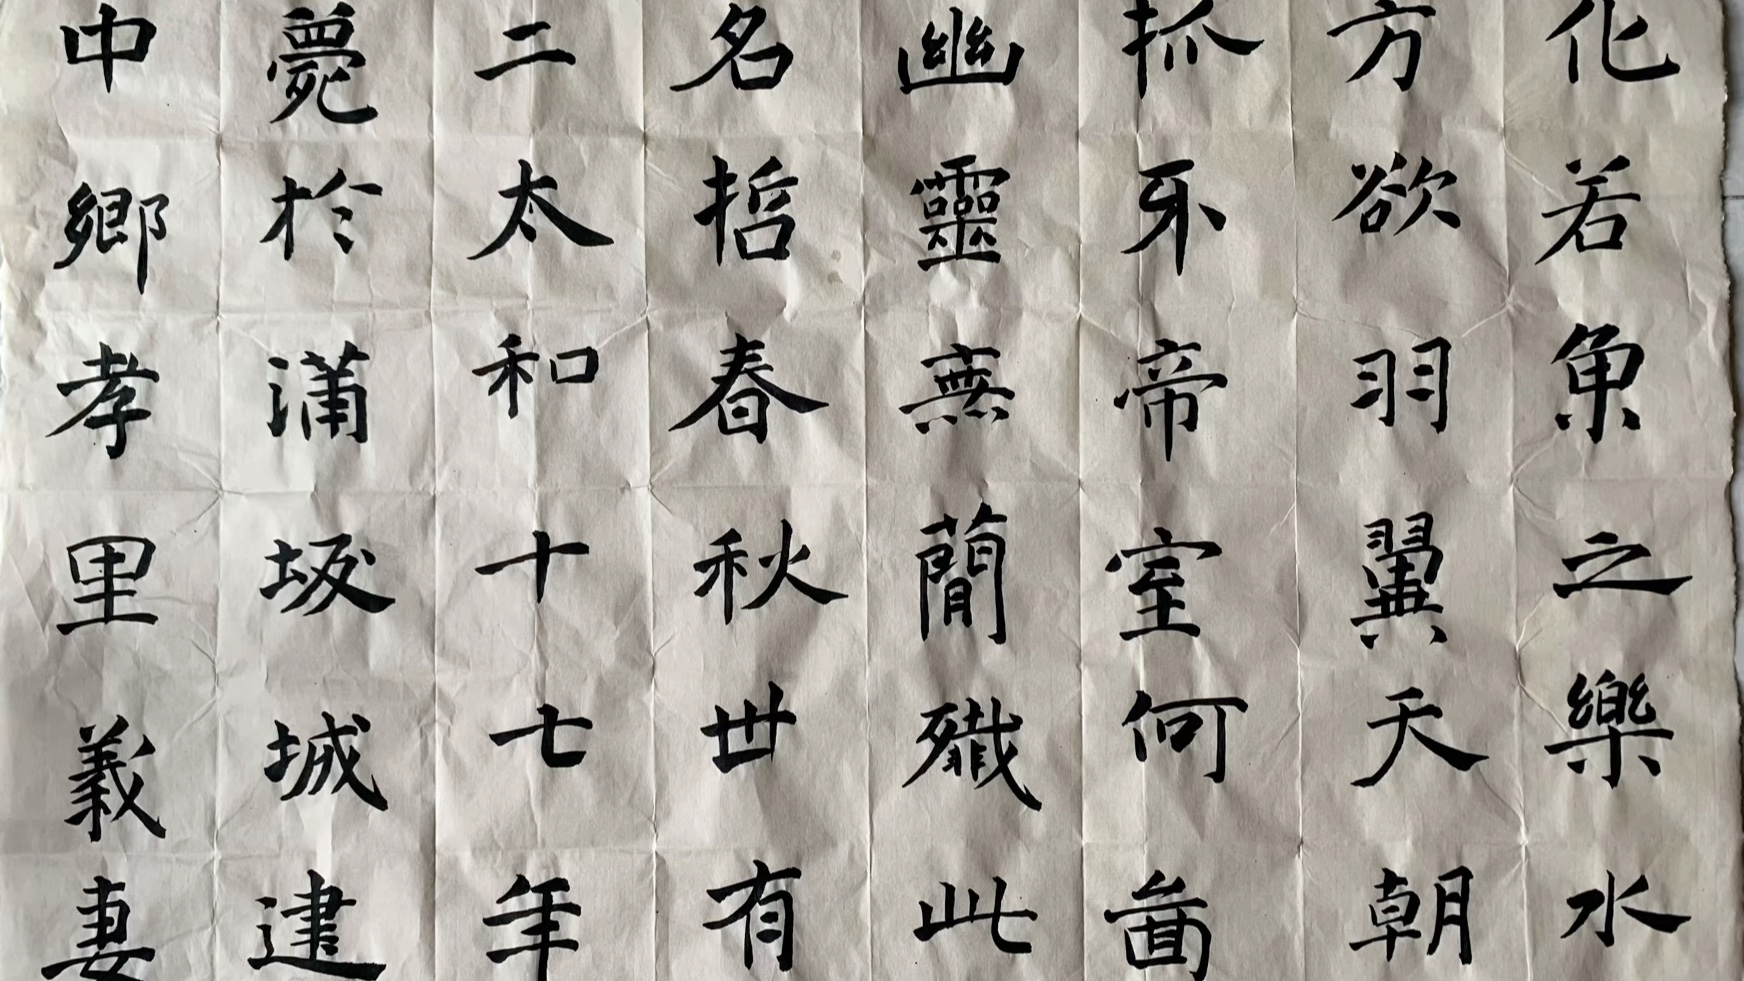 化若魚之樂水
方欲羽翼天朝
抓牙帝室何啚
幽靈無簡殲此
名哲春秋丗有
二太和十七年
薨於蒲坂城建
中鄉孝里義妻